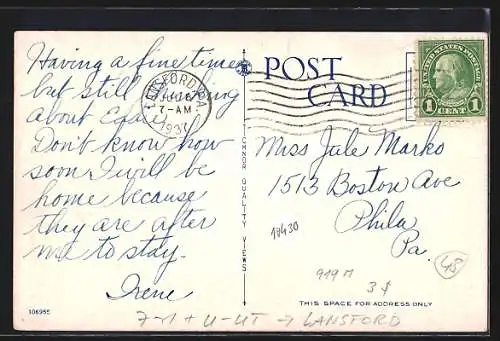 Having a fine time
but still thinking
about
Don't know how
soon I will be
home because
they are after
me to stay.
Irene
10695E
TICHNOR QUALITY VIEWS
LANSFORD PA.
7-AM
1931
POST CARD
UNITED STATES POSTAGE
FRANKLIN
1 CENT 1
Miss Jule Marko
1513 Boston Ave
Phila
Pa.
18430
919 M
3 $
48
THIS SPACE FOR ADDRESS ONLY
LANSFORD